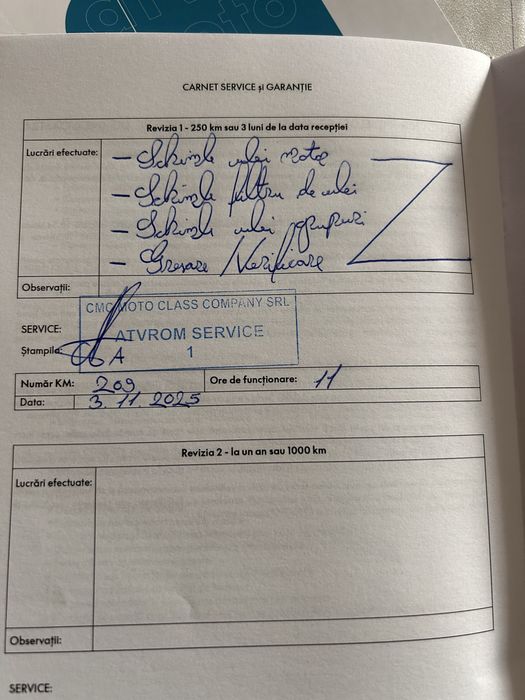 CARNET SERVICE și GARANȚIE
Revizia 1 - 250 km sau 3 luni de la data recepției
Lucrări efectuate:
— Schimb ulei motor
— Schimb filtru de ulei
— Schimb ulei grupuri
— Gresare / Verificare
Observații:
CMC MOTO CLASS COMPANY SRL
SERVICE:
ATVROM SERVICE
Ștampila:
1
Număr KM: 209 Ore de funcționare: 11
Data: 3. 11. 2025
Revizia 2 - la un an sau 1000 km
Lucrări efectuate:
Observații:
SERVICE: